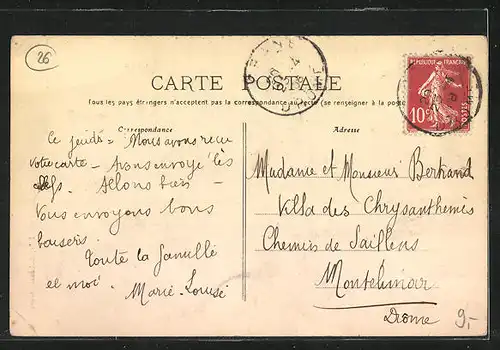 26
CARTE POSTALE
Tous les pays étrangers n'acceptent pas la correspondance au recto (se renseigner à la poste
Correspondance
Adresse
REPUBLIQUE FRANCAISE
10
POSTES
Ce jeudi = Nous avons reçu
votre carte - avons envoyé les
clefs. Allons bien -
Vous envoyons bons
baisers.
Toute la famille
et moi.
Marie-Louise
Madame et Monsieur Bertrand
Villa des Chrysanthèmes
Chemin de Saillens
Montélimar
Drôme
9,-